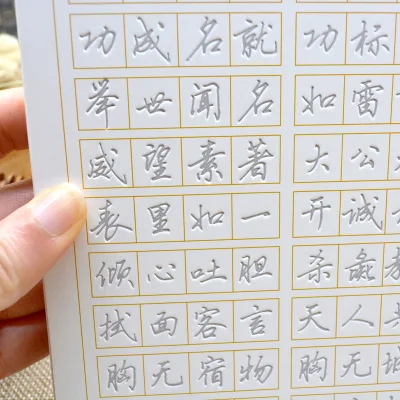 功成名就 功标
举世闻名 如雷
威望素著 大公
表里如一 开诚
倾心吐胆 杀彘教
拭面容言 天人共
胸无宿物 胸无城